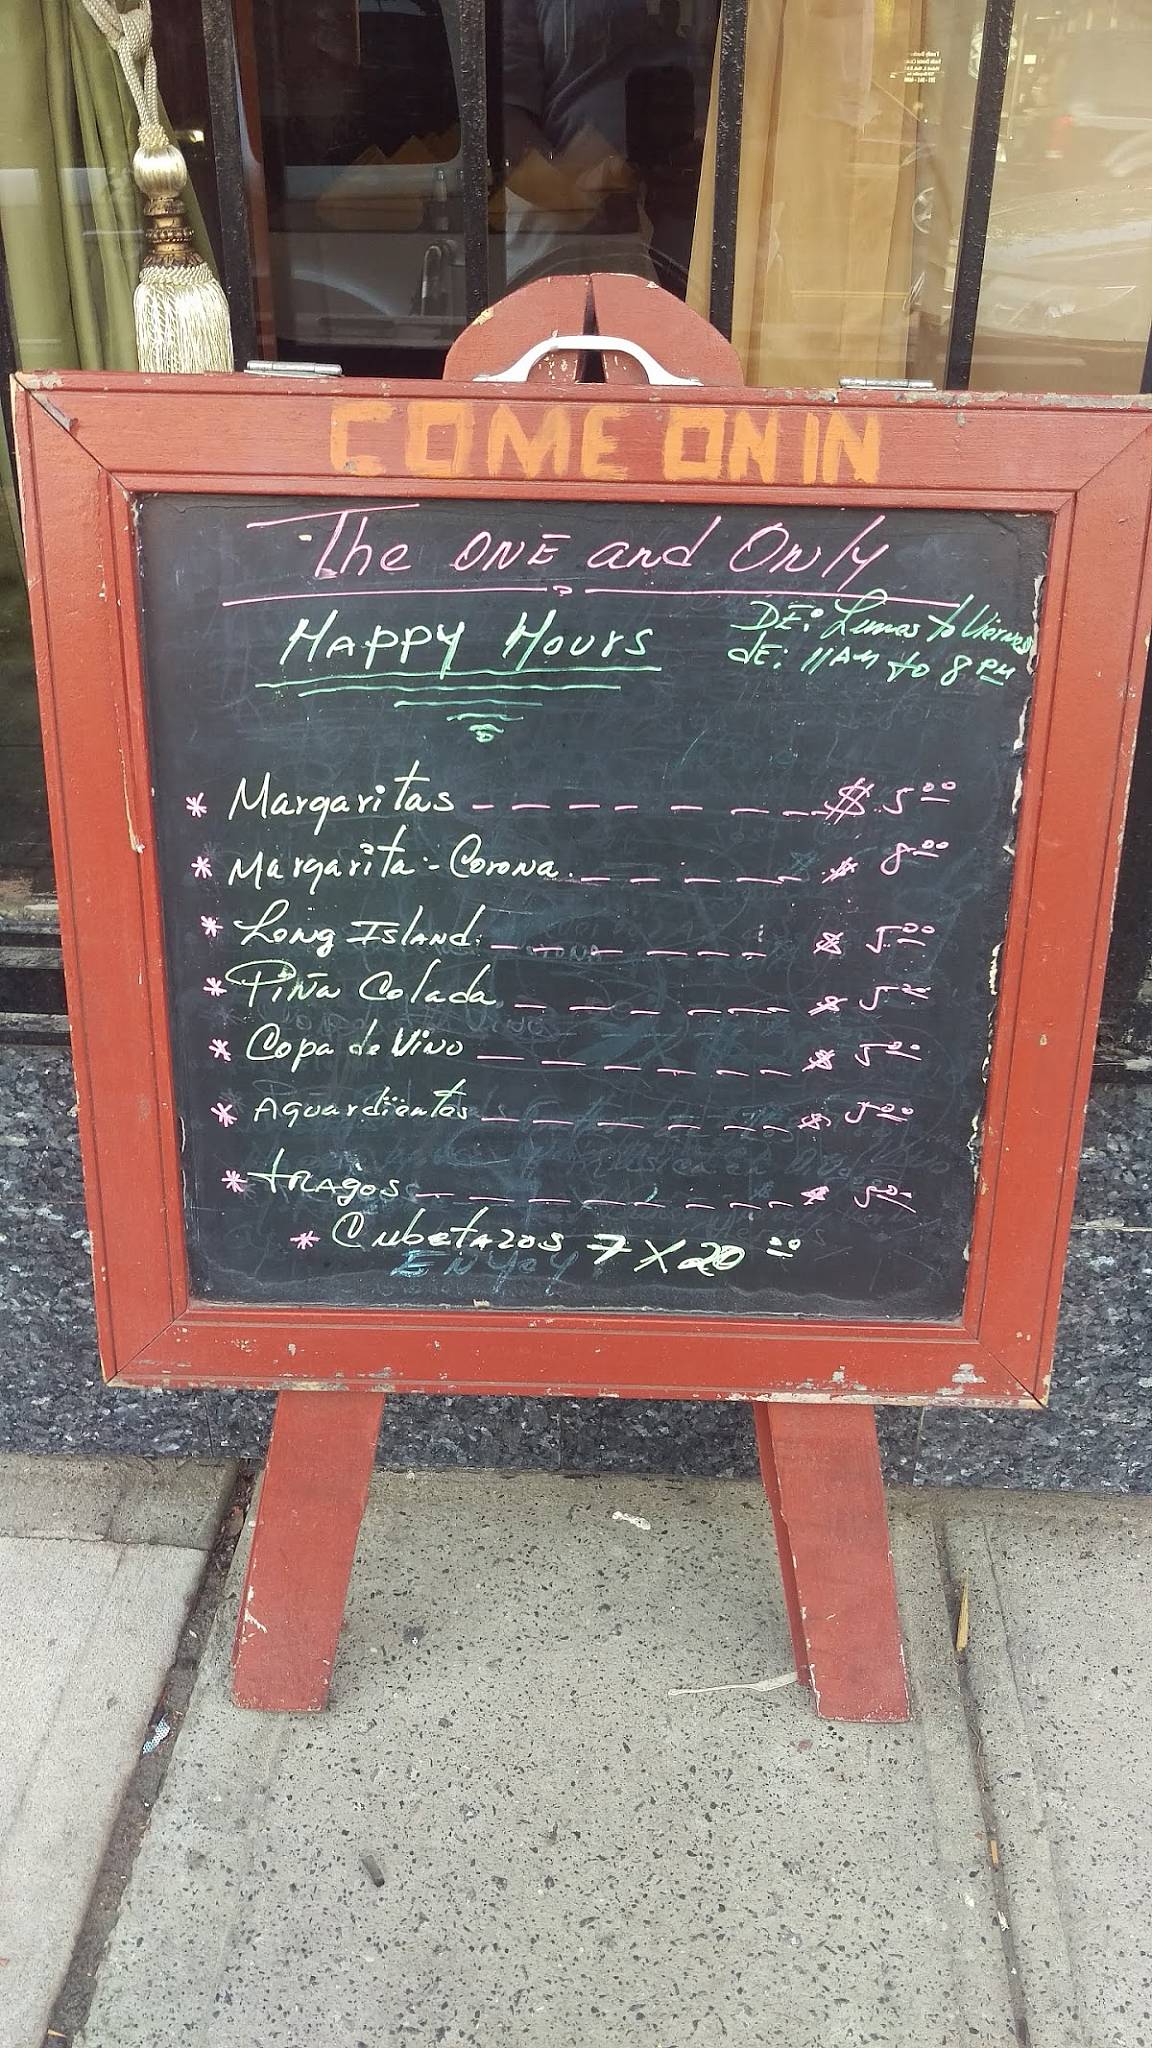 COME ON IN
The ONE and Only
HAPPY HOURS
DE: Lunes to Viernes
dE: 11AM to 8PM
* Margaritas - - - - - - - $ 5.00
* Margarita - Corona. - - - - - $ 8.00
* Long Island: - - - - - - $ 5.00
* Piña Colada - - - - - $ 5.00
* Copa de Vino - - - - - - $ 5.00
* Aguardientes - - - - - - $ 5.00
* tRAgos - - - - - - - $ 5.00
* Cubetazos 7 X 20.00
ENJOY